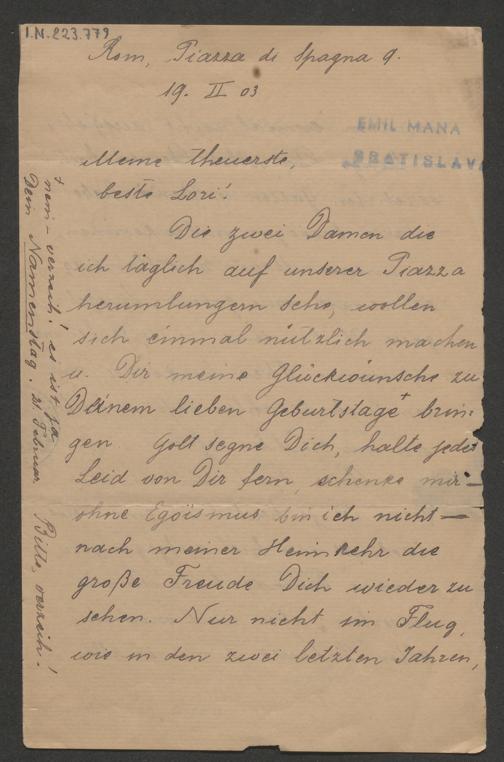 I.N. 223.779
Rom, Piazza di Spagna 9.
19. II 03
EMIL MANA
BRATISLAVA
Meine theuerste,
beste Lori!
Die zwei Damen die
ich täglich auf unserer Piazza
herumlungern sehe, wollen
sich einmal nützlich machen
u. Dir meine Glückwünsche zu
Deinem lieben Geburtstage + brin-
gen. Gott segne Dich, halte jedes
Leid von Dir fern, schenke mir –
ohne Egoismus bin ich nicht –
nach meiner Heimkehr die
große Freude Dich wieder zu
sehen. Nur nicht im Flug,
wie in den zwei letzten Jahren,
+ nein – verzeih! es ist ja
Dein Namenstag. 21. Februar Bitte, verzeih!